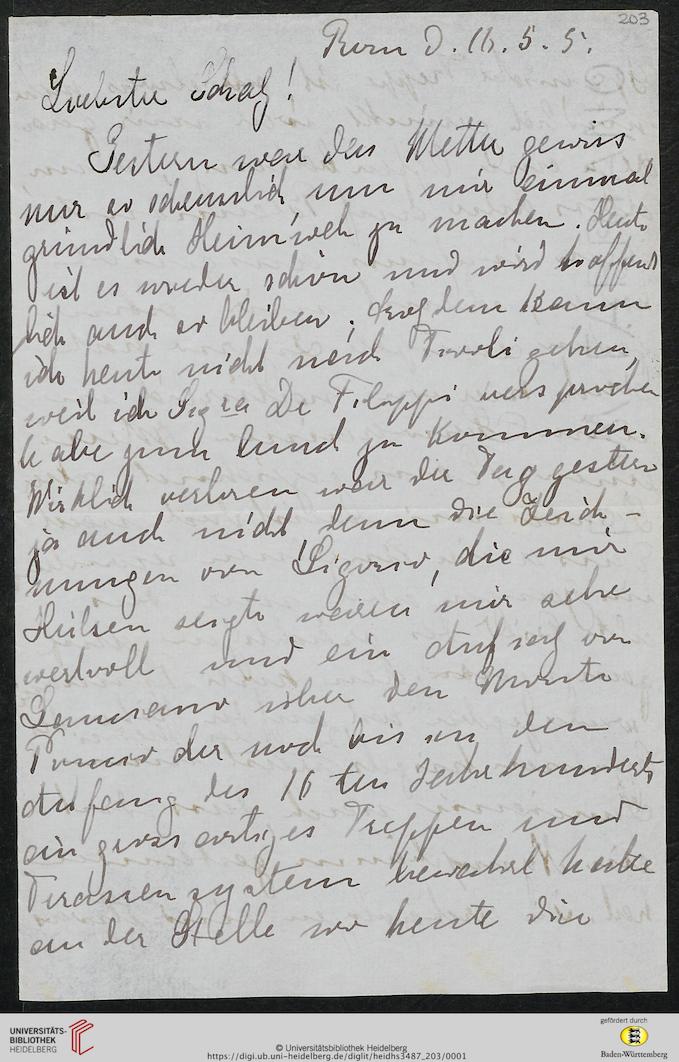 203
Rom d. 16. 5. 5.
Liebster Schatz!
Gestern war das Wetter gewiss
nur so scheusslich um mir einmal
gründlich Heimweh zu machen. Heute
ist es wieder schön und wird hoffent
lich auch so bleiben. Trotzdem kann
ich heute nicht nach Tivoli gehen,
weil ich Sigra De Filippi versprochen
habe zum lunch zu kommen.
Wirklich verloren war der Tag gestern
ja auch nicht, denn die Zeich-
nungen von Ligorio, die mir
Hülsen zeigte waren mir sehr
wertvoll und ein Aufsatz von
Lanciano über den Monte
Pincio der noch bis an den
Anfang des 16 ten Jahrhunderts
ein grossartiges Treppen und
Terassen system bewahrt hatte
an der Stelle wo heute die
UNIVERSITÄTS-
BIBLIOTHEK
HEIDELBERG
© Universitätsbibliothek Heidelberg
https://digi.ub.uni-heidelberg.de/diglit/heidhs3487_203/0001
gefördert durch
Baden-Württemberg